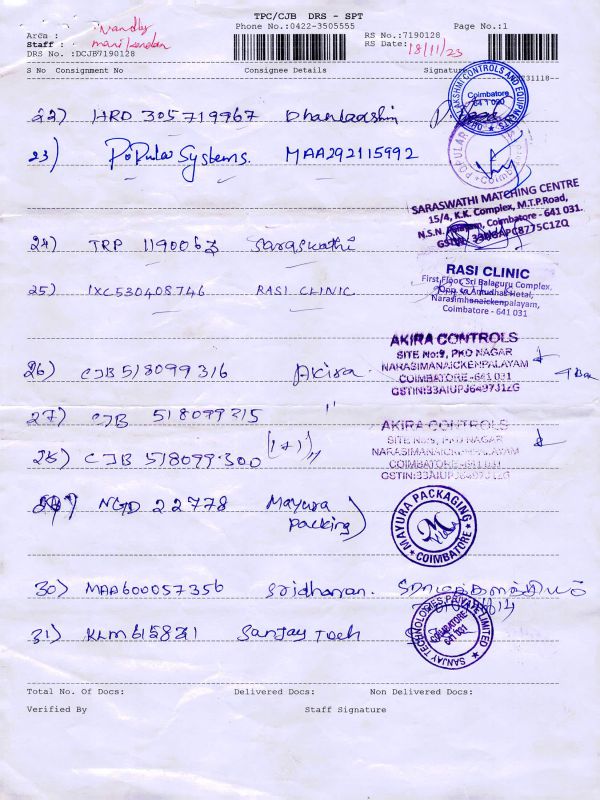 TPC/CJB DRS - SPT
Phone No.:0422-3505555
Page No.:1
Area :
Staff : manikandan
DRS No. :DCJB7190128
RS No.:7190128
RS Date: 18/11/23
S No Consignment No Consignee Details Signature
231118
22) HRD 305719967
LAKSHMI CONTROLS AND EQUIPMENTS
Coimbatore
23) Popular Systems. MAA292115992
POPULAR
SARASWATHI MATCHING CENTRE
15/4, K.K. Complex, M.T.P.Road,
Coimbatore - 641 031.
24) Saraswathi
25) IXC530408746 RASI CLINIC
RASI CLINIC
First Floor, Sri Balaguru Complex,
Narasimhanaickenpalayam,
Coimbatore - 641 031
26) CJB 518099316 Akira
AKIRA CONTROLS
SITE No:9, PKD NAGAR
NARASIMANAICKENPALAYAM
COIMBATORE - 641 031
GSTIN:33AIUPJ6497J1ZG
27) CJB 518099315 "
28) CJB 518099300 (1+1) "
AKIRA CONTROLS
SITE No:9, PKD NAGAR
NARASIMANAICKENPALAYAM
COIMBATORE-641 031
GSTIN:33AIUPJ6497J1ZG
NGD 22778 Mayura
packing
MAYURA PACKAGING
COIMBATORE
30) MAA600057356 Sridharan.
31) Sanjay Tech
SANJAY TECHNOLOGIES PRIVATE LIMITED
COIMBATORE
641 031
Total No. Of Docs: Delivered Docs: Non Delivered Docs:
Verified By Staff Signature